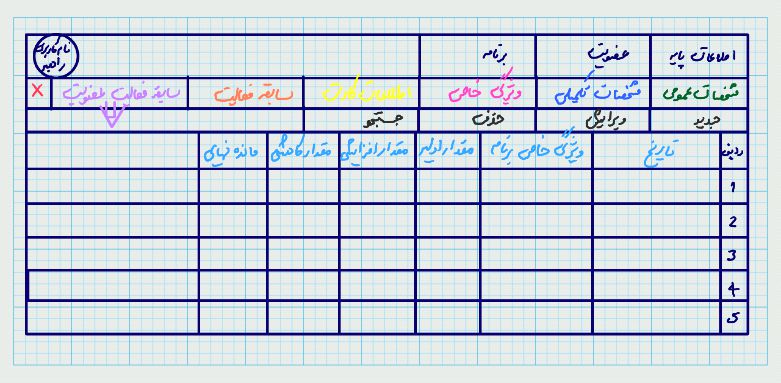 اطلاعات پایه عضویت برنامه نام کاربری راهبر
مشخصات عمومی مشخصات تکمیلی ویژگی خاص اطلاعات کارت سابقه فعالیت سابقه فعالیت عضویت X
جدید ویرایش حذف جستجو
ردیف تاریخ ویژگی خاص برنامه مقدار اولیه مقدار افزایشی مقدار کاهشی مانده نهایی
1
2
3
4
5